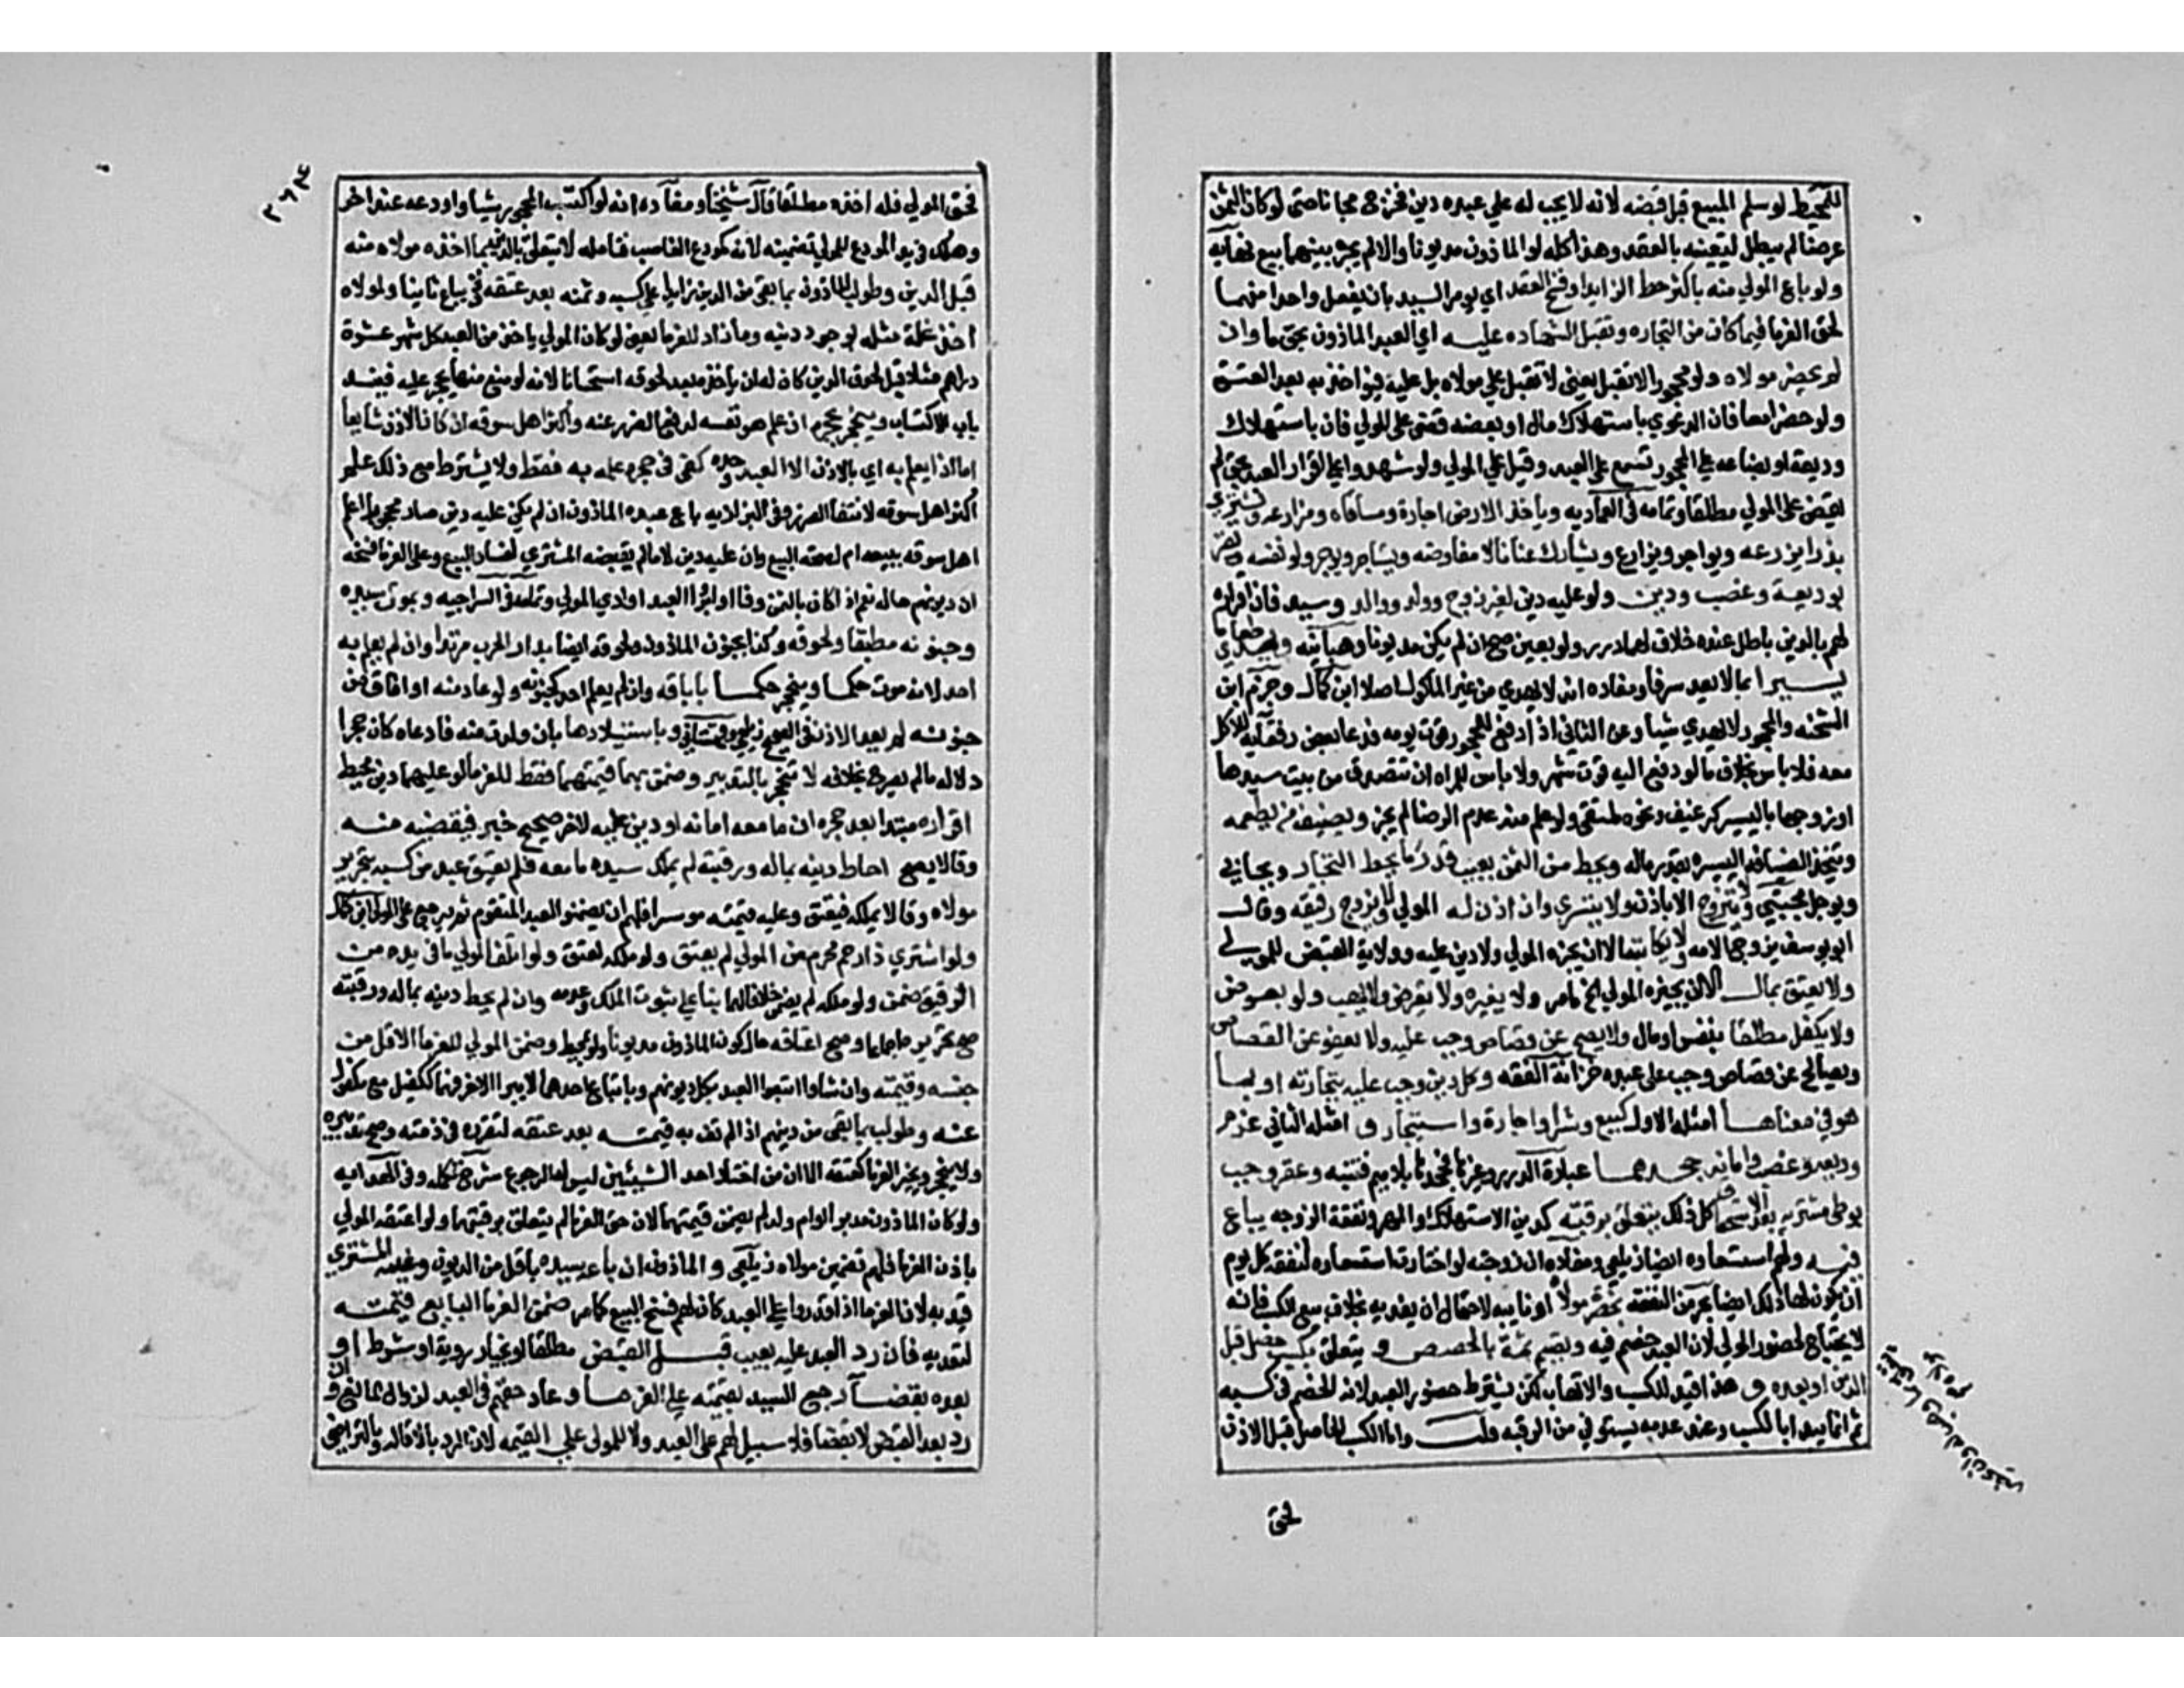 للمحيط لو سلم المبيع قبل قبضه لانه لا يجب له علي عبده دين فخرج مجانا حتي لو كان الثمن
عرضا لم يبطل لتعينه بالعقد وهذا كله لو الماذون مديونا والا لم يجز بينهما بيع نهايه
ولو باع المولي منه باكثر حط الزايد او فسخ العقد اي يومر السيد بان يفعل واحدا منهما
لحق الغرما فيما كان من التجاره وتقبل الشهاده عليه اي العبد الماذون بحق ما وان
لم يحضر مولاه ولو محجورا لا تقبل يعني لا تقبل علي مولاه بل عليه فيواخذ به بعد العتق
ولو حضرا معا فان الدعوي باستهلاك مال او بعضه قضي علي المولي فان باستهلاك
وديعة او بضاعه علي المحجور تسمع علي العبد وقيل علي المولي ولو شهدوا علي اقرار العبد بحق لم
يقض علي المولي مطلقا وتمامه في العماديه وياخذ الارض اجارة ومساقاه ومزارعه ويشتري
بذرا يزرعه ويواجر ويزارع ويشارك عنانا لا مفاوضه ويستاجر ويوجر ولو نفسه ويقر
بوديعة وغصب ودين ولو عليه دين لغير زوج وولد ووالد وسيد فان اقراره
لهم بالدين باطل عنده خلافا لهما درر ولو بعين صح ان لم يكن مديونا وهبانيه ويهدي طعاما
يسيرا بما لا يعد سرفا ومفاده انه لا يهدي من غير الماكول اصلا ابن كمال وجزم ابن
الشحنه والمحجور لا يهدي شيا وعن الثاني اذا دفع للمحجور قوت يومه فدعا بعض رفقايه للاكل
معه فلا باس بخلاف ما لو دفع اليه قوت شهر ولا باس للمراه ان تتصدق من بيت سيدها
او زوجها باليسير كرغيف ونحوه ملتقي ولو علم منه عدم الرضا لم يجز ويضيف من يطعمه
ويتخذ الضيافه اليسيره بقدر ماله ويحط من الثمن بعيب قدر ما يحط التجار ويحابي
ويوجل مجتبي ولا يتزوج الا باذن ولا يتسري وان اذن له المولي ولا يزوج رقيقه وقال
ابو يوسف يزوج الامه ولا يكاتبه الا ان يجيزه المولي ولا دين عليه وولاية القبض للمولي
ولا يعتق بمال الا ان يجيزه المولي الخ مامر ولا بغيره ولا يقرض ولا يهب ولو بعوض
ولا يكفل مطلقا بنفس او مال ولا يصالح عن قصاص وجب عليه ولا يعفو عن القصاص
ويصالح عن قصاص وجب علي عبده خزانة الفقه وكل دين وجب عليه بتجارته او بما
هو في معناها امثله الاول كبيع وشرا واجارة واستيجار و امثله الثاني غرم
وديعه وغصب وامانه جحدهما عبارة الدرر وغيرها جحدها بلا ميم فتنبه وعقر وجب
بوطي مشتريه بعد الاستحقاق كل ذلك يتعلق برقبته كدين الاستهلاك والمهر ونفقة الزوجه يباع
فيه ولهم استسعاوه ايضا زيلعي ومفاده ان زوجته لو اختارت استسعاوه لنفقة كل يوم
ان يكون لها ذلك ايضا بحر من النفقه بحضرة مولاه او نايبه لاحتمال ان يفديه بخلاف بيع الكسب فانه
لا يحتاج لحضور المولي لان العبد خصم فيه ويقسم ثمنه بالحصص و يتعلق بكسب حصل قبل
الدين او بعده و هذا قيد للكسب والاتهاب لكن يشترط حضور العبد لانه الخصم في كسبه
ثم انما يبدا بالكسب وعند عدمه يستوفي من الرقبه قلت واما الكسب الحاصل قبل الاذن
لحق
فحق المولي فله اخذه مطلقا قال شيخنا ومفاده انه لو اكتسب المحجور شيا واودعه عند اخر
وهلك في يد المودع للمولي تضمينه لانه كمودع الغاصب فتامله لا يتعلق بالدين بما اخذه مولاه منه
قبل الدين وطولب الماذون بما بقي من الدين زايدا علي كسبه وثمنه بعد عتقه ولا يباع ثانيا ولمولاه
اخذ غلة مثله بوجود دينه وما زاد للغرما يعني لو كان المولي ياخذ من العبد كل شهر عشرة
دراهم مثلا قبل لحوق الدين كان له ان ياخذها بعد لحوقه استحسانا لانه لو منع منها يحجر عليه فينسد
باب الاكتساب وينحجر بحجره ان علم هو نفسه لدفع الضرر عنه واكثر اهل سوقه ان كان الاذن شايعا
اما اذا لم يعلم به اي بالاذن الا العبد وحده كفي في حجره علمه به فقط ولا يشترط مع ذلك علم
اكثر اهل سوقه لانتفا الضرر وفي البزازيه باع عبده الماذون ان لم يكن عليه دين صار محجورا علم
اهل سوقه ببيعه ام لا لصحة البيع وان عليه دين لا ما لم يقبضه المشتري لفساد البيع وعلي الغرما فسخه
ان ديونهم حاله نعم اذا كان بالثمن وفا او ابروا العبد او ادي المولي وتمامه في السراجيه وبموت سيده
وجنونه مطبقا ولحوقه وكذا بجنون الماذون ولحوقه ايضا بدار الحرب مرتدا وان لم يعلم به
احد لانه موت حكما وينحجر حكما باباقه وان لم يعلم احد كجنونه ولو عاد منه او افاق من
جنونه لم يعد الاذن في الصحيح زيلعي وقهستاني وباستيلادها بان ولدت منه فادعاه كان حجرا
دلاله ما لم يصرح بخلافه لا تنحجر بالتدبير وضمن بهما قيمتهما فقط للغرما لو عليهما دين محيط
اقراره مبتدا بعد حجره ان ما معه امانه او دين عليه لاخر صحيح خبر فيقضيه منه
وقالا يصح احاط دينه بماله ورقبته لم يملك سيده ما معه فلم يعتق عبد من كسبه بتحرير
مولاه وقالا يملكه فيعتق وعليه قيمته موسرا فلهم ان يضمنوا العبد المعتق ثم يرجع علي المولي ابن كمال
ولو اشتري ذا رحم محرم من المولي لم يعتق ولو ملكه لعتق ولو اتلف المولي ما في يده من
الرقيق ضمن ولو ملكه لم يضمن خلافا لهما بنا علي ثبوت الملك وعدمه وان لم يحط دينه بماله ورقبته
صح تحريره اجماعا وصح اعتاقه حال كون الماذون مديونا ولو بمحيط وضمن المولي للغرما الاقل من
دينه وقيمته وان شاوا اتبعوا العبد بكل ديونهم وباتباع احدهما لا يبرا الاخر فهما ككفيل مع مكفول
عنه وطولب بما بقي من دينهم اذا لم تف به قيمته بعد عتقه لتقرره في ذمته وصح تدبيره
ولا ينحجر ويخير الغرما كعتقه الا ان من اختار احد الشيئين ليس له الرجوع شرح تكمله وفي الهدايه
ولو كان الماذون مدبرا او ام ولد لم يضمن قيمتهما لان حق الغرما لم يتعلق برقبتهما ولو اعتقه المولي
باذن الغرما فلهم تضمين مولاه زيلعي و الماذون ان باعه سيده باقل من الديون وغيبه المشتري
قيد به لان الغرما اذا قدروا علي العبد كان لهم فسخ البيع كما مر ضمن الغرما البايع قيمته
لتعديه فان رد العبد عليه بعيب قبل القبض مطلقا او بخيار روية او شرط او
بعده بقضا رجع السيد بقيمته علي الغرما وعاد حقهم في العبد لزوال المانع وان
رد بعد القبض لا بقضا فلا سبيل لهم علي العبد ولا للمولي علي القيمه لان الرد بالاقاله وبالتراضي